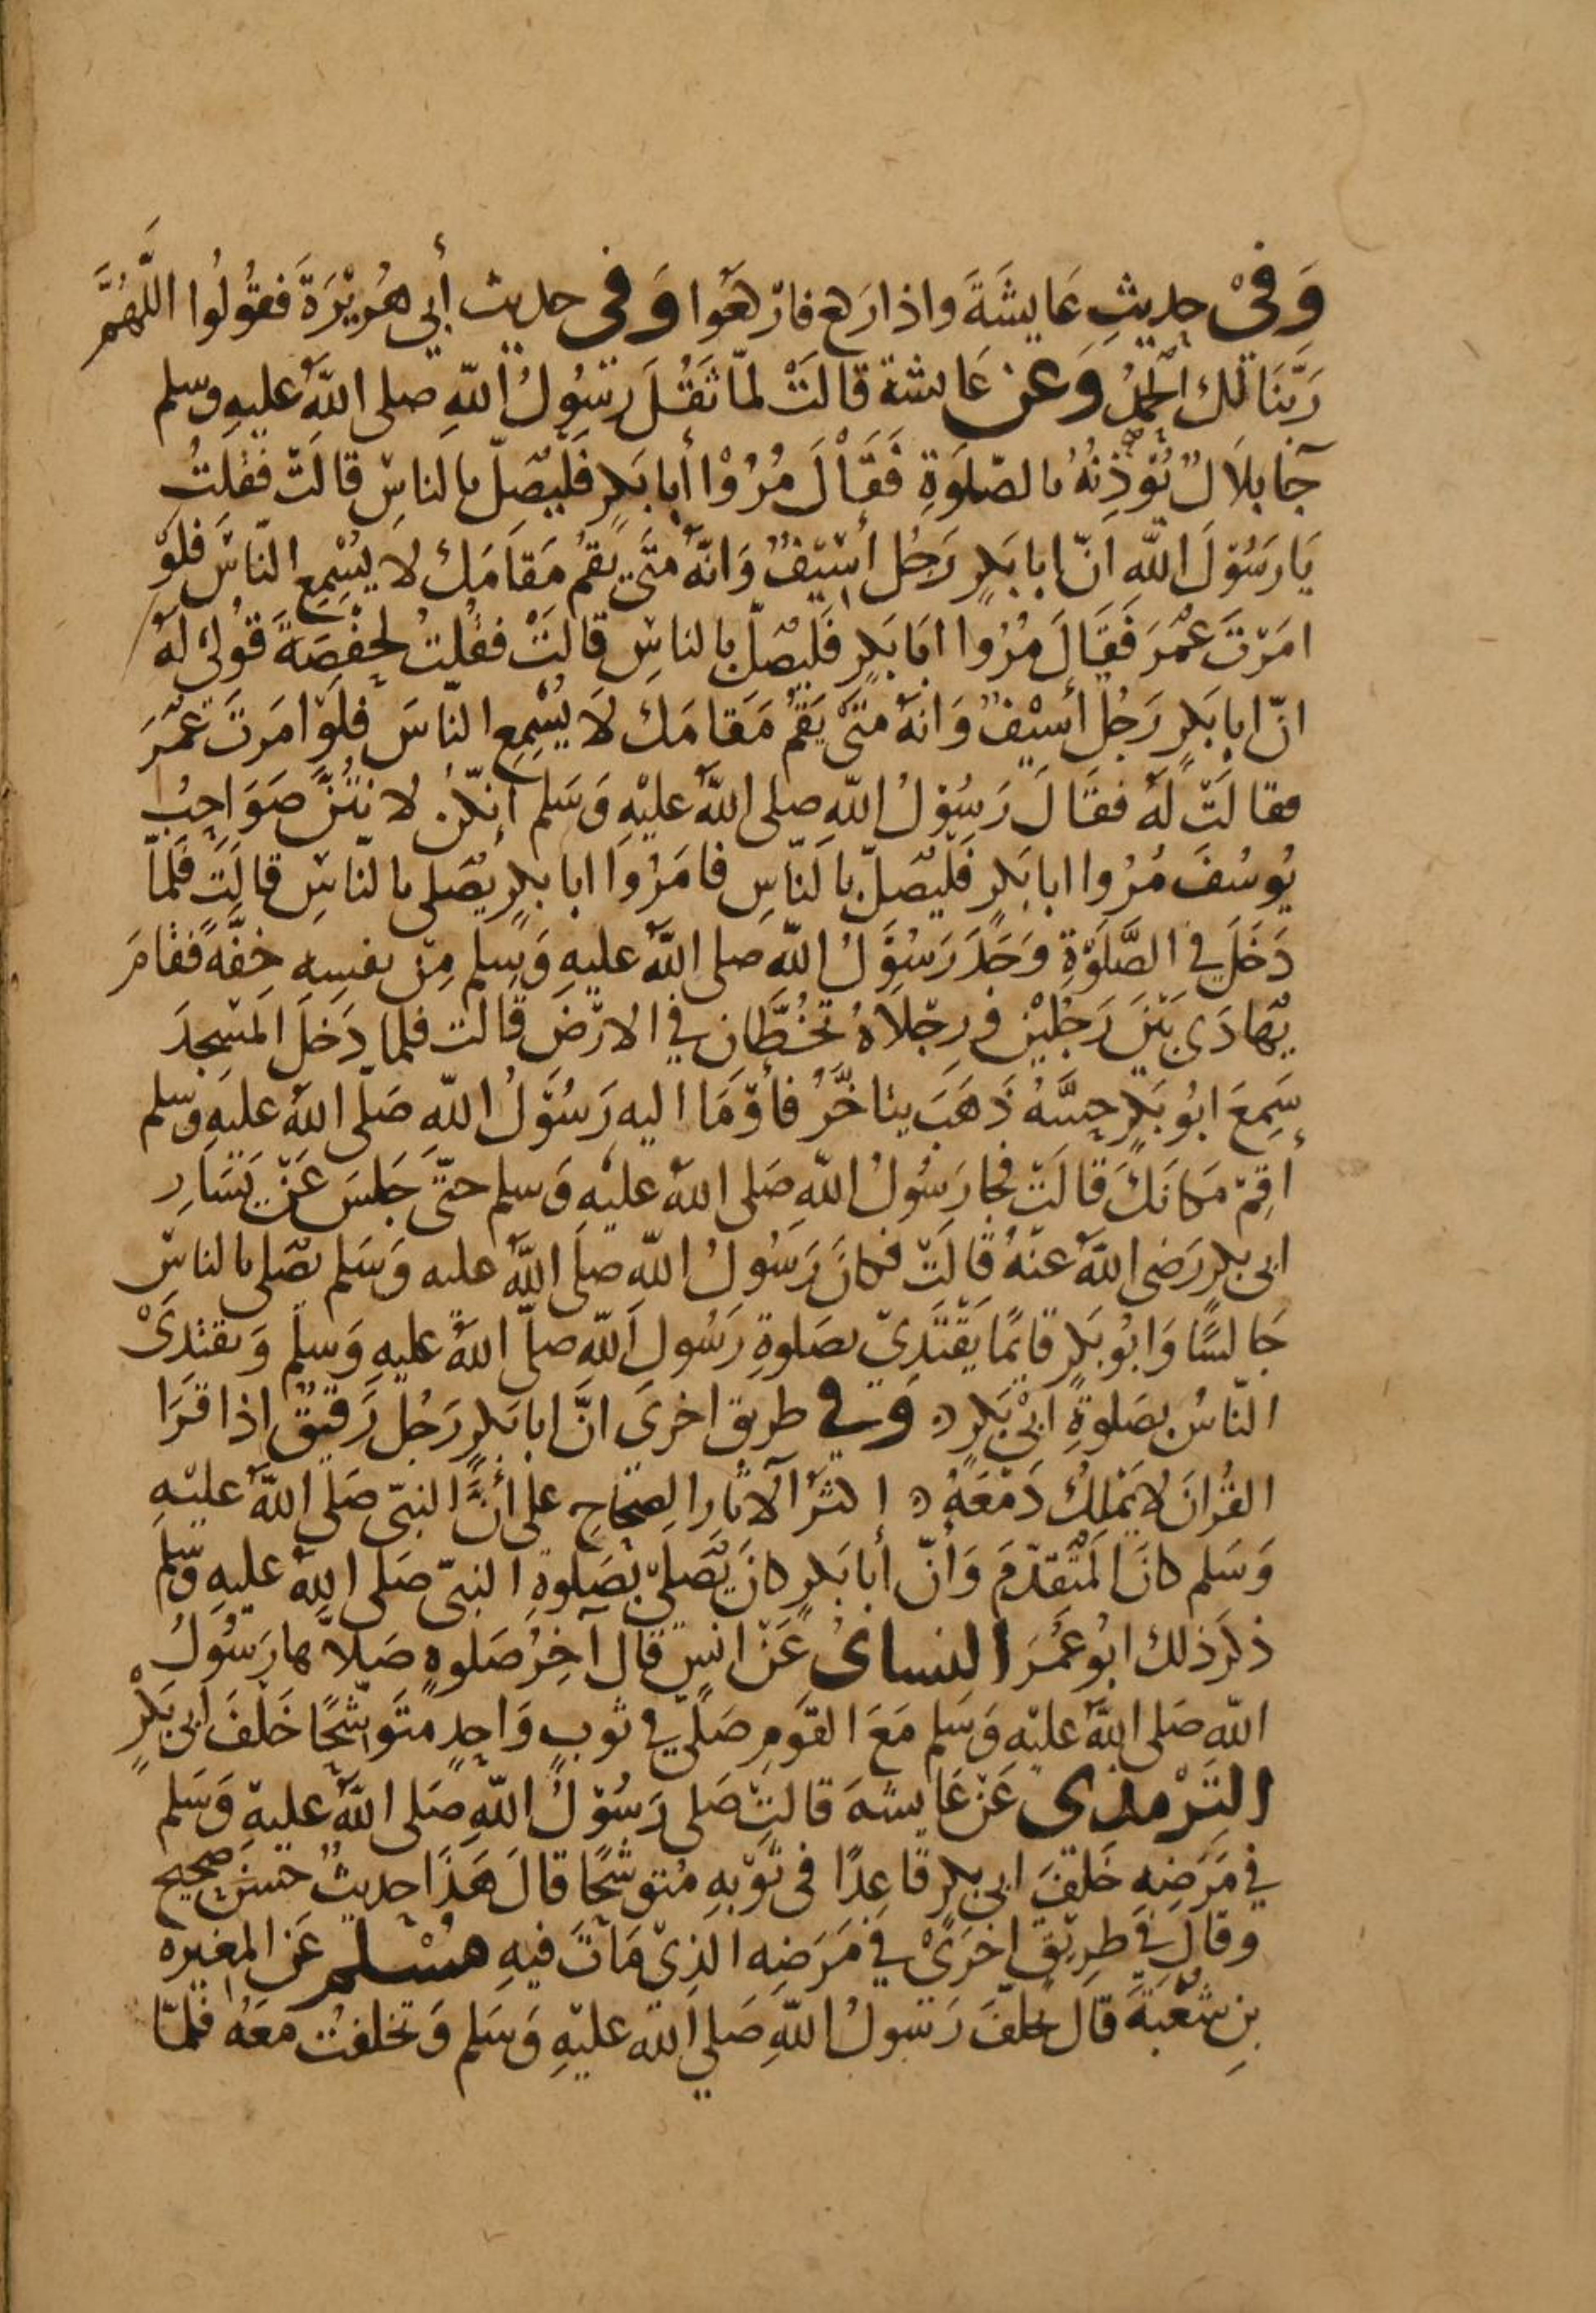 وَفِيْ حديثِ عَايشَةَ واذا رَفع فارْفعَوا وَفى حديث أبي هُرَيْرَةَ فقُولُوا اللَّهُمَّ
رَبَّنَا لك الحمدُ وَعن عَايشة قالَتْ لمّا ثَقُلَ رسُولُ اللّهِ صلى اللّهُ عليهِ وسلم
جآ بلَالٌ يُؤذِنُهُ بالصّلَوةِ فَقَالَ مُرُوْا أبا بَكرٍ فَليُصَلّ بالناسِ قالَتْ فقُلتُ
يَا رَسُوْلَ اللّهِ انّ ابا بَكرٍ رَجُل أسِيْفٌ وَانّهُ متَى يَقمُ مَقامَك لا يُسْمِعِ النّاسَ فلَوْ
امَرْتَ عُمَرَ فَقَالَ مُرُوا ابَا بَكرٍ فَليُصَلّ بالناسِ قالتْ فقُلتُ لحفصَةَ قُولى لَهُ
انّ ابا بَكرٍ رَجُل أسيْفٌ وَانهُ متَى يَقُمْ مَقامَك لَا يُسْمِعِ النّاسَ فلَوْ امَرتَ عُمَرَ
فقالَتْ لَهُ فقَالَ رَسُوْلُ اللّهِ صلى اللّهُ عليْهِ وَسَلم انكنّ لانتُنَّ صَوَاحِبُ
يُوسُفَ مُرُوا ابا بَكرٍ فَلْيُصَلّ بالنّاسِ فامَرُوا ابا بكرٍ يُصَلى بالنّاسِ قالَتَ فَلمّا
دَخَلَ في الصَّلَوةِ وَجَدَ رَسُوْلُ اللّهِ صلى اللّهُ عليهِ وَسلم مِنْ نفسِهِ خِفَّةً فقامَ
يُهادَى بَيْنَ رَجُليْنِ وَرِجْلَاهُ تخُطَّانِ في الارْضِ قالت فلما دَخلَ المَسْجدَ
سَمِعَ ابُو بَكرٍ حِسَّهُ ذَهَبَ يتاخَّرُ فأوْمَا اليهِ رَسُوْلُ اللّهِ صَلّى اللّهُ عليهِ وَسلم
أَقِمْ مَكانَكَ قالَتْ فجا رَسُولُ اللّهِ صَلى اللّهُ عليْهِ وَسلم حتّى جَلسَ عَنْ يَسَارِ
ابى بكرٍ رَضى اللّهُ عنهُ قالَتْ فكانَ رَسُولُ اللّهِ صلَى اللّهُ عليه وَسَلم يصّلى بالناسِ
جَالسًا وَابُو بَكرٍ قايمًا يَقْتَدِيْ بصَلوةِ رَسُولِ اللّهِ صلّى اللّهُ عليهِ وَسلم وَيقتدِىْ
النّاسُ بصَلوةِ ابىْ بَكرٍ ه وَفي طريق اخرى انَّ ابا بَكرٍ رَجُل رَقيقٌ اذا قرَا
القُرانَ لا يَمْلِكُ دَمْعَهُ ه اكثرُ الآثارِ الصحاحِ على أنَّ النبىّ صَلى اللّهُ عليْهِ
وَسَلم كانَ المتقدّمَ وَأنّ أبا بَكرٍ كانَ يُصَلِيّ بصَلوةِ النبىّ صَلى اللهُ عليهِ وَسلم
ذكرَ ذلك ابُو عُمَرَ النسائى عَنْ انسٍ قال آخِرُ صَلوهٍ صَلاها رَسُولُ
اللّهِ صَلى اللّهُ عليْهِ وَسَلم مَعَ القوَمِ صَلّى في ثوبٍ وَاحِدٍ متَوشحًا خَلفَ ابى بَكرٍ
الترْمذى عَنْ عَايشهَ قالتْ صَلى رَسُوْلُ اللّهِ صَلى اللّهُ عليهِ وَسَلم
في مَرَضِهِ خَلفَ ابى بكرٍ قاعِدًا فى ثوْبهِ مُتوشحًا قالَ هَذَا حديثٌ حسَنٌ صحيح
وقال في طريقٍ اخرَىْ في مَرَضهِ الذىْ مَاتَ فيهِ مُسْلم عَن المغيره
بنِ شعْبَةَ قالَ تخلفَ رَسُولُ اللّهِ صَلى اللّه عليْهِ وَسَلم وَتخلفتُ معَهُ فلمّا